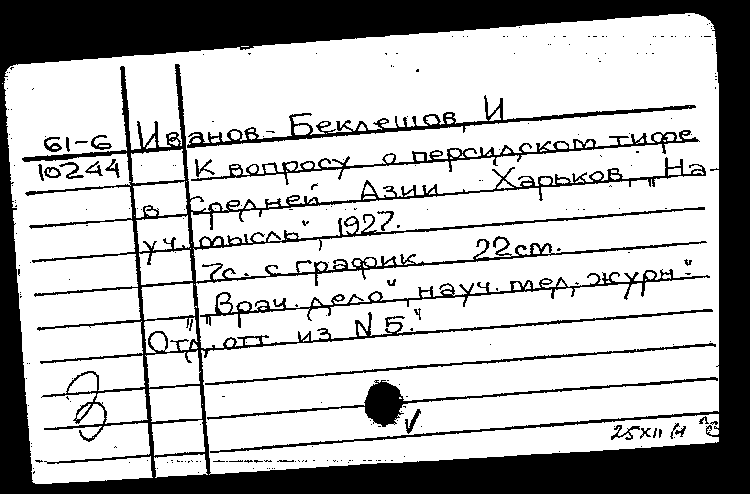 61-6 Иванов-Беклешов, И
10244 К вопросу о персидском тифе
в Средней Азии. Харьков, „На-
уч. мысль", 1927.
7с. с график. 22см.
„Врач. дело", науч. мед. журн."
Отд. отт из N 5."
З
25 XII